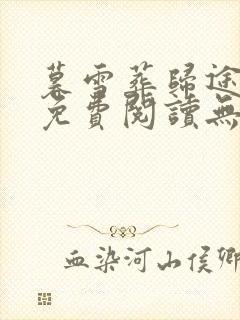 暮雪葬歸途
免費閱讀無
血染河山侯卿